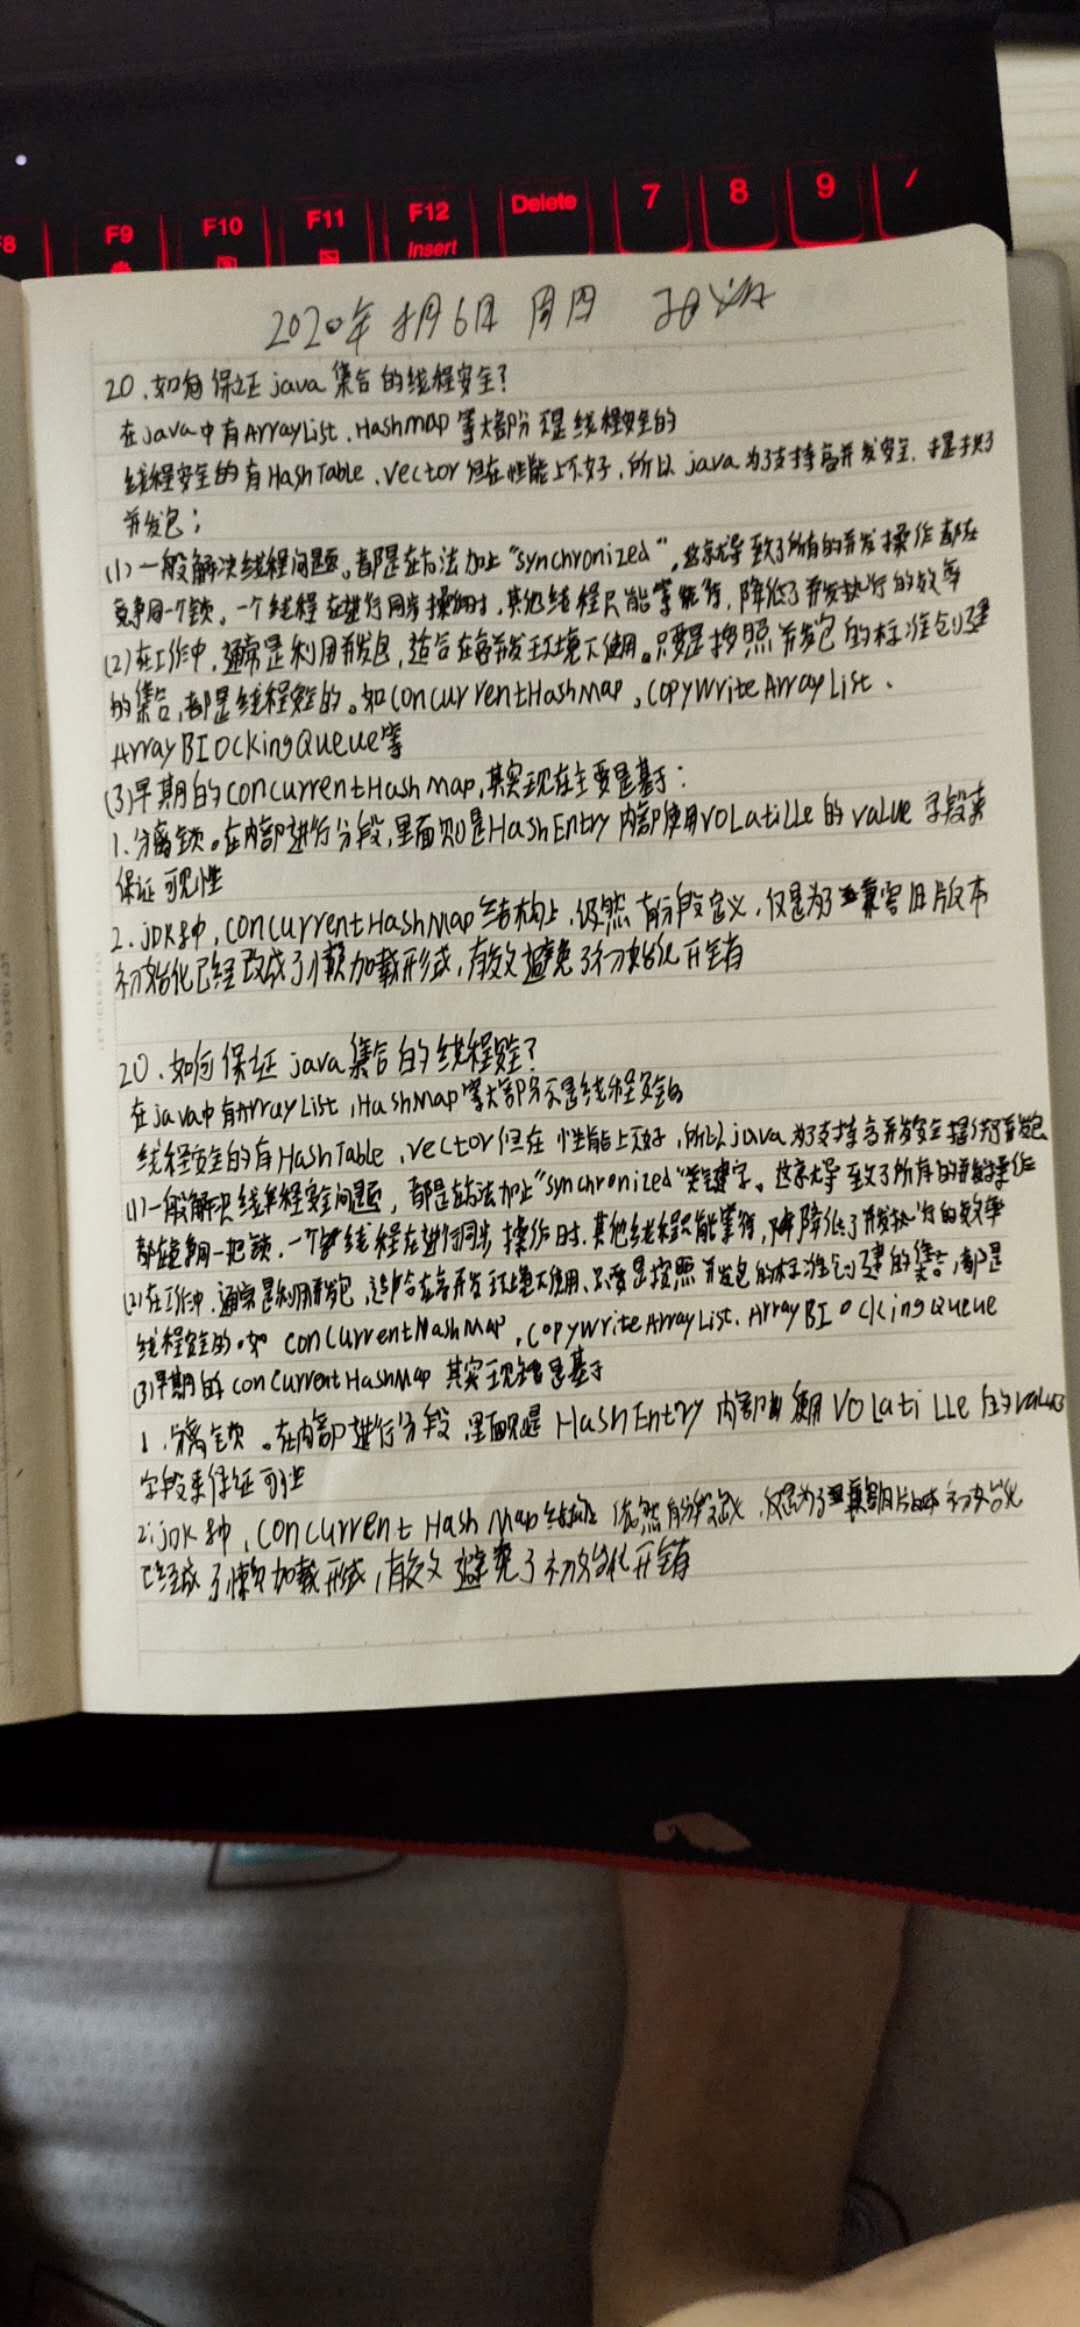 F8 F9 F10 F11 F12 Delete 7 8 9 /
Insert
2020年8月6日 周四
20.如何保证java集合的线程安全?
在java中有ArrayList、Hashmap等大部分不是线程安全的
线程安全的有HashTable、vector但在性能上不好,所以java为了支持高并发安全.提供了
并发包;
(1)一般解决线程问题。都是在方法加上"synchronized",这就导致了所有的并发操作都在
竞争同一个锁。一个线程在进行同步操作时,其他线程只能等待,降低了并发执行的效率
(2)在工作中,通常是利用并发包,适合在高并发环境下使用。只要是按照并发包的标准创建
的集合,都是线程安全的。如ConcurrentHashMap、CopyWriteArrayList、
ArrayBIockingQueue等
(3)早期的ConcurrentHashMap,其实现在主要是基于:
1.分离锁。在内部进行分段,里面则是HashEntry内部使用voLatiLLe的value字段来
保证可见性
2.jDK8中,ConcurrentHashMap结构上,仍然有分段定义,仅是为了兼容旧版本
初始化已经改成了懒加载形式,有效避免了初始化开销
20.如何保证java集合的线程安全?
在java中有ArrayList,HashMap等大部分不是线程安全的
线程安全的有HashTable、vector但在性能上不好,所以java为了支持高并发安全提供了并发包
(1)一般解决线程安全问题,都是在方法加上"synchronized"关键字。这就导致了所有的并发操作
都在竞争同一把锁.一个线程在进行同步操作时.其他线程只能等待,降低了并发执行的效率
(2)在工作中.通常是利用并发包,适合在高并发环境下使用、只要是按照并发包的标准创建的集合,都是
线程安全的.如ConcurrentHashMap、CopyWriteArrayList、ArrayBIockingQueue
(3)早期的ConcurrentHashMap其实现主要是基于
1.分离锁。在内部进行分段,里面则是HashEntry内部使用VoLatiLLe的value
字段来保证可见性
2.jDK8中,ConcurrentHashMap结构上依然有分段定义,仅是为了兼容旧版本初始化
已经成了懒加载形式,有效避免了初始化开销